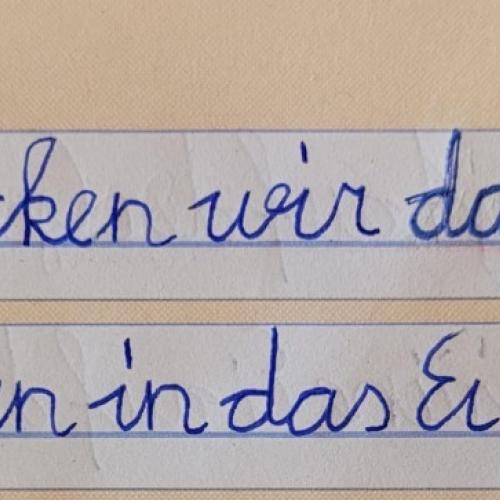 cken wir da
n in das Ei